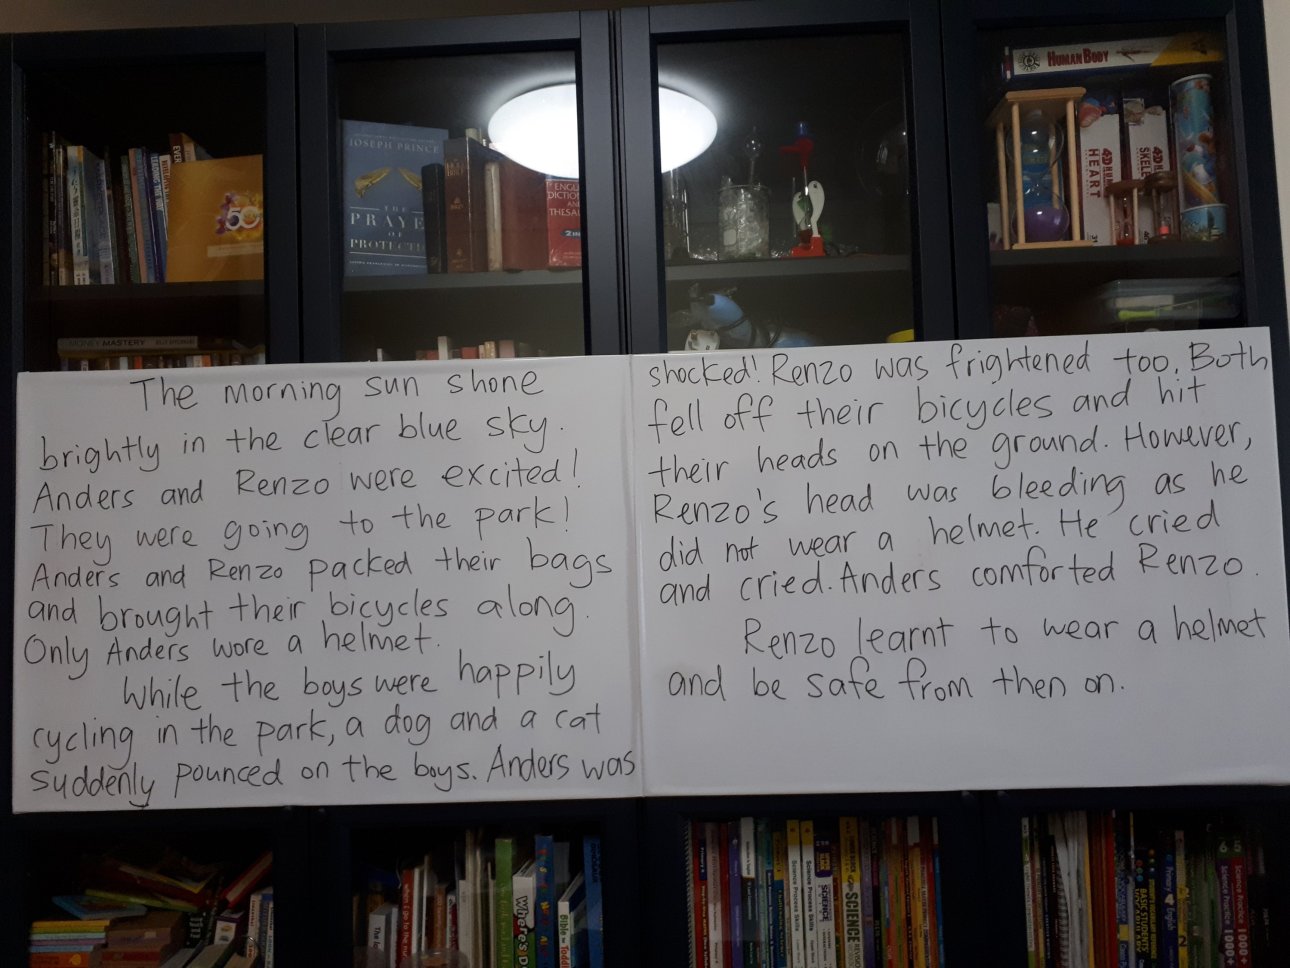 HUMAN BODY
JOSEPH PRINCE
THE
PRAYER
OF
PROTECTION
50
HEART
MONEY MASTERY
The morning sun shone
brightly in the clear blue sky.
Anders and Renzo were excited!
They were going to the park!
Anders and Renzo packed their bags
and brought their bicycles along.
Only Anders wore a helmet.
While the boys were happily
cycling in the park, a dog and a cat
suddenly pounced on the boys. Anders was
shocked! Renzo was frightened too. Both
fell off their bicycles and hit
their heads on the ground. However,
Renzo's head was bleeding as he
did not wear a helmet. He cried
and cried. Anders comforted Renzo.
Renzo learnt to wear a helmet
and be safe from then on.
Science Process Skills
SCIENCE
SCIENCE